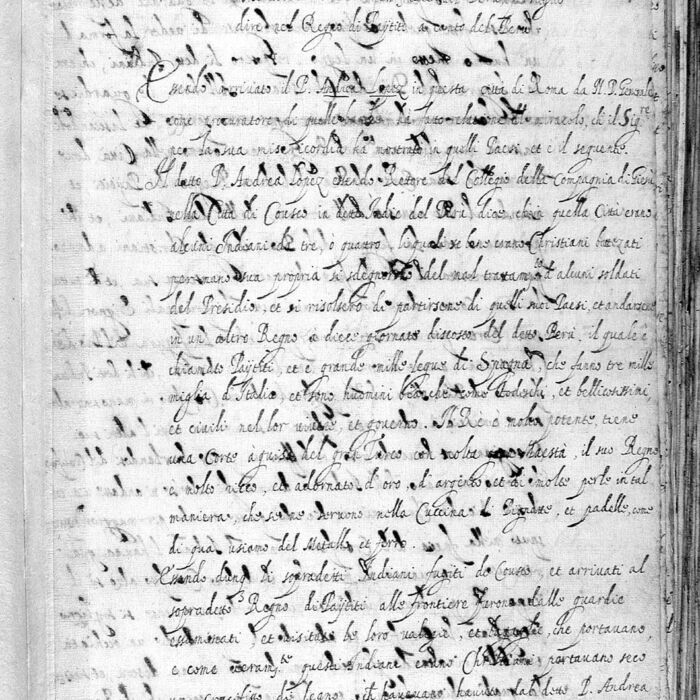 dire nel Regno di Paÿtiti a canto del Perù.
Essendo arrivato il P. Andrea Lopez in questa Città di Roma da N. P. Generale
come procuratore di quelle ha fatto relatione del miracolo, ch' il Sig.re
per la sua misericordia ha mostrato in quelli Paesi, et è il seguente.
Il detto P. Andrea Lopez essendo Rettore del Collegio della Compagnia di Giesù
nella Città di Cousco in dette Indie del Perù dice ch'in quella Città erano
alcuni Indiani da tre, o quattro, li quali se bene erano Christiani battezati
per mano sua propria si sdegnorno del mal trattam.to d'alcuni soldati
del Presidio, et si risolsero di partirsene di quelli suoi Paesi, et andarsene
in un' altro Regno a diece giornate discosto del detto Perù, il quale è
chiamato Paÿtiti, et è grande mille legue di Spagna, che fanno tre mille
miglia d'Italia, et sono huomini bianchi come Todeschi, et bellicosissimi,
et civili nel lor vivere, et governo. Il Re è molto potente, tiene
una Corte a guisa del gran Turco con molta Maestà, il suo Regno
è molto ricco, et adornato d'oro, d'argento, et di molte perle in tal
maniera, che se ne servono nella Cuccina di Pignatte, et padelle, come
di qua usiamo del Metallo et ferro.
Essendo dunq. li sopradetti Indiani fugiti da Cousco, et arrivati al
sopradetto Regno di Paÿtiti alle frontiere furono dalle guardie
essaminati, et visitate le loro valigie, et che portavano,
e come questi Indiani erano Christiani portavano seco
Crocifisso di legno, il havevano havuto da detto P. Andrea